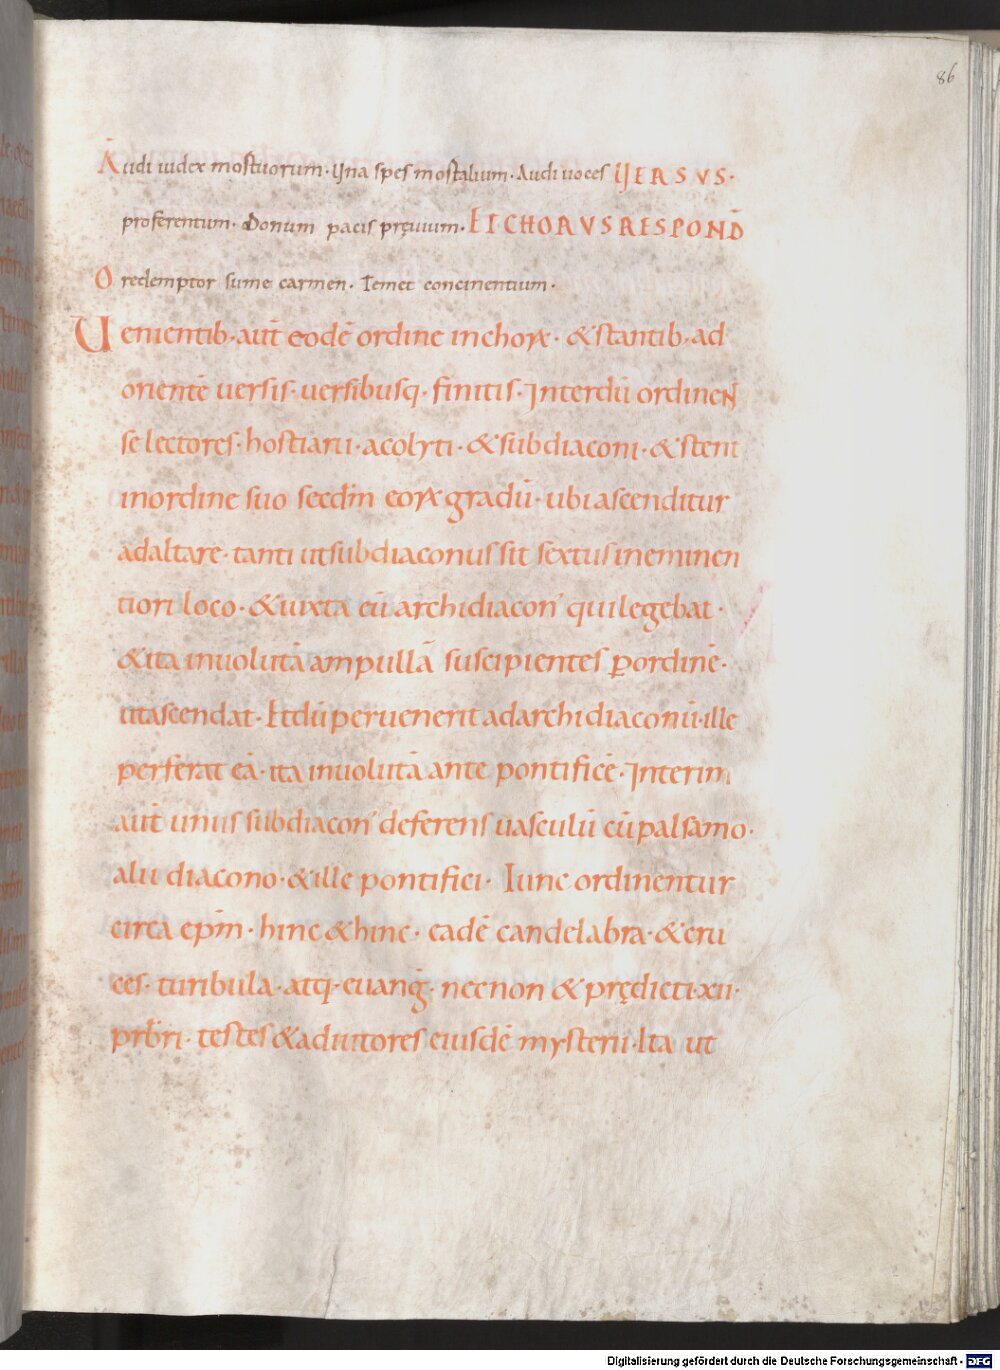 86
Audi iudex mortuorum · Una spes mortalium · Audi uoces VERSVS ·
proferentum · Donum pacis pręuium · ET CHORVS RESPOND̄
O redemptor sume carmen · Temet concinentium ·
Uenientib· aut̄ eodē ordine in choꝝ · & stantib· ad
orientē uersis · uersibusq· finitis · Interdū ordinent
se lectores · hostiarii · acolyti · & subdiaconi · & stent
in ordine suo secdm̄ eoꝝ gradū · ubi ascenditur
ad altare · tanti ut subdiaconus sit sextus in eminen
tiori loco · & iuxta eū archidiacon̄ qui legebat ·
& ita inuolutā ampullā suscipientes ꝑ ordinē ·
ut ascendat · Et dū peruenerit ad archidiaconū · ille
perferat eā · ita inuolutā ante pontificē · Interim
aut̄ unus subdiacon̄ deferens uasculū cū palsamo ·
alii diacono · & ille pontifici · Tunc ordinentur
circa ep̄m · hinc & hinc · eadē candelabra · & cru
ces · turibula · atq· euanḡ · necnon & prędicti · xii ·
prb̄ri · testes & adiutores eiusdē mysterii · Ita ut
Digitalisierung gefördert durch die Deutsche Forschungsgemeinschaft - DFG